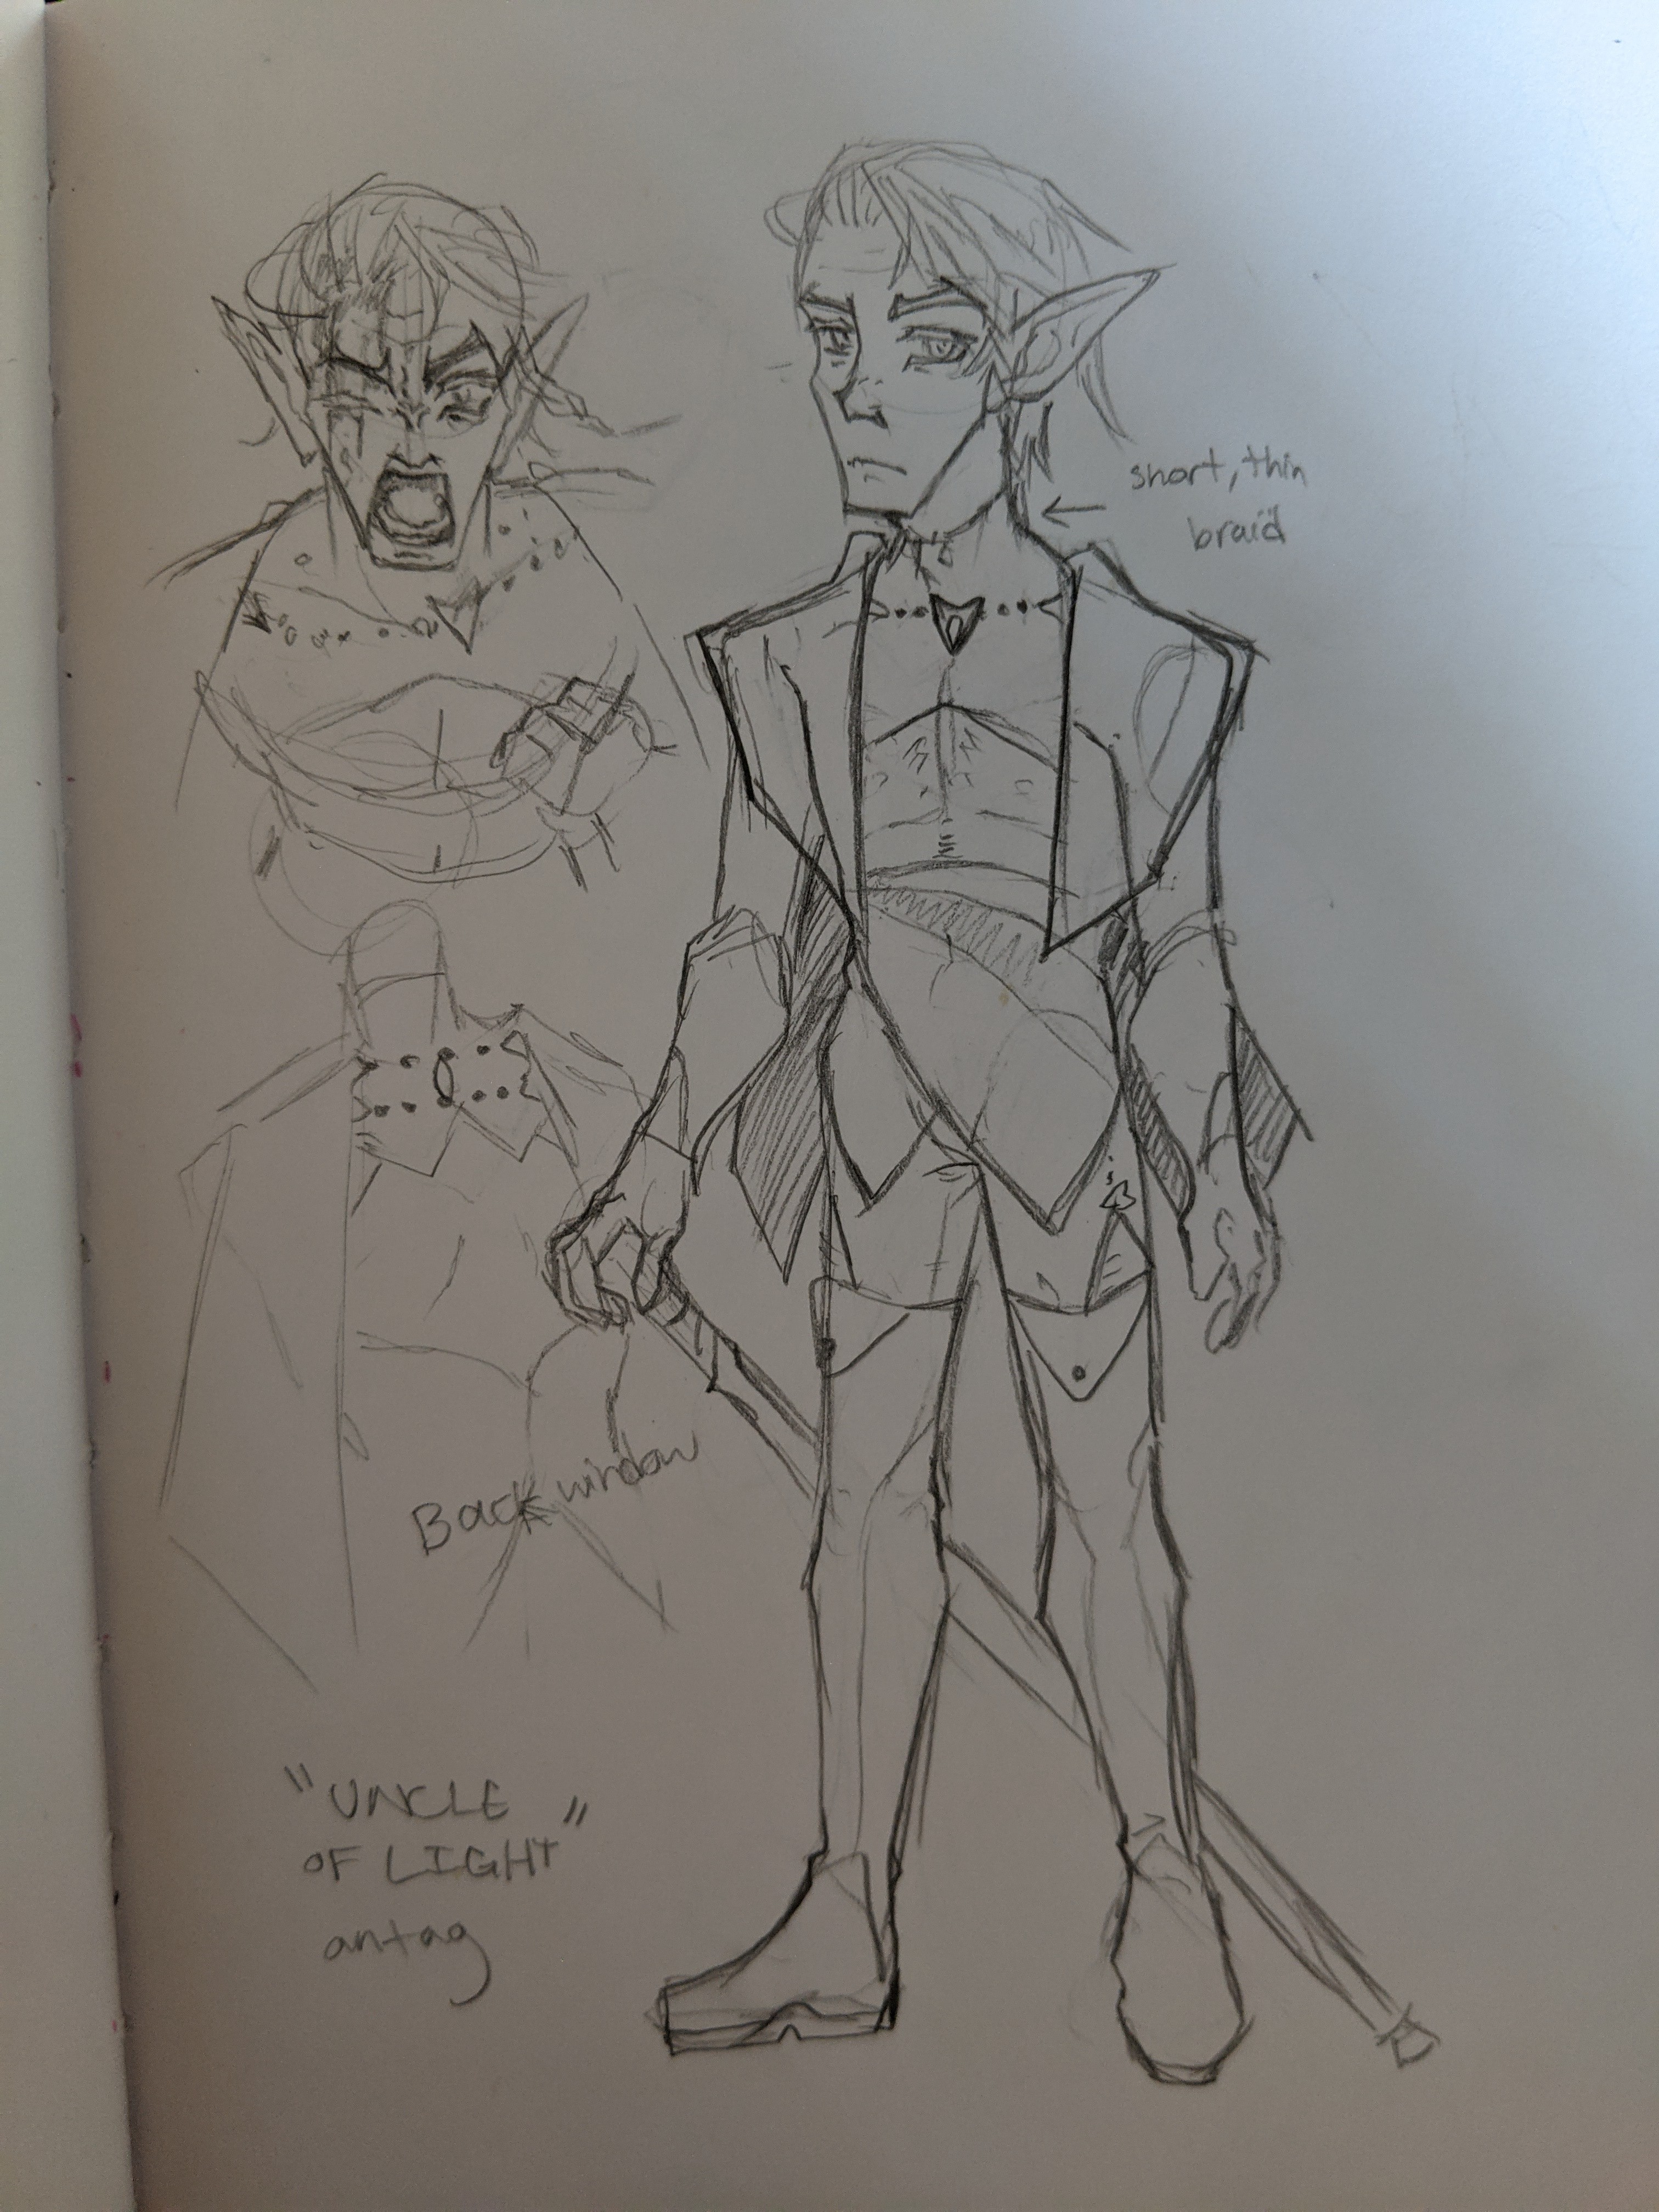 short, thin
braid
Back window
"UNCLE
OF LIGHT"
antag